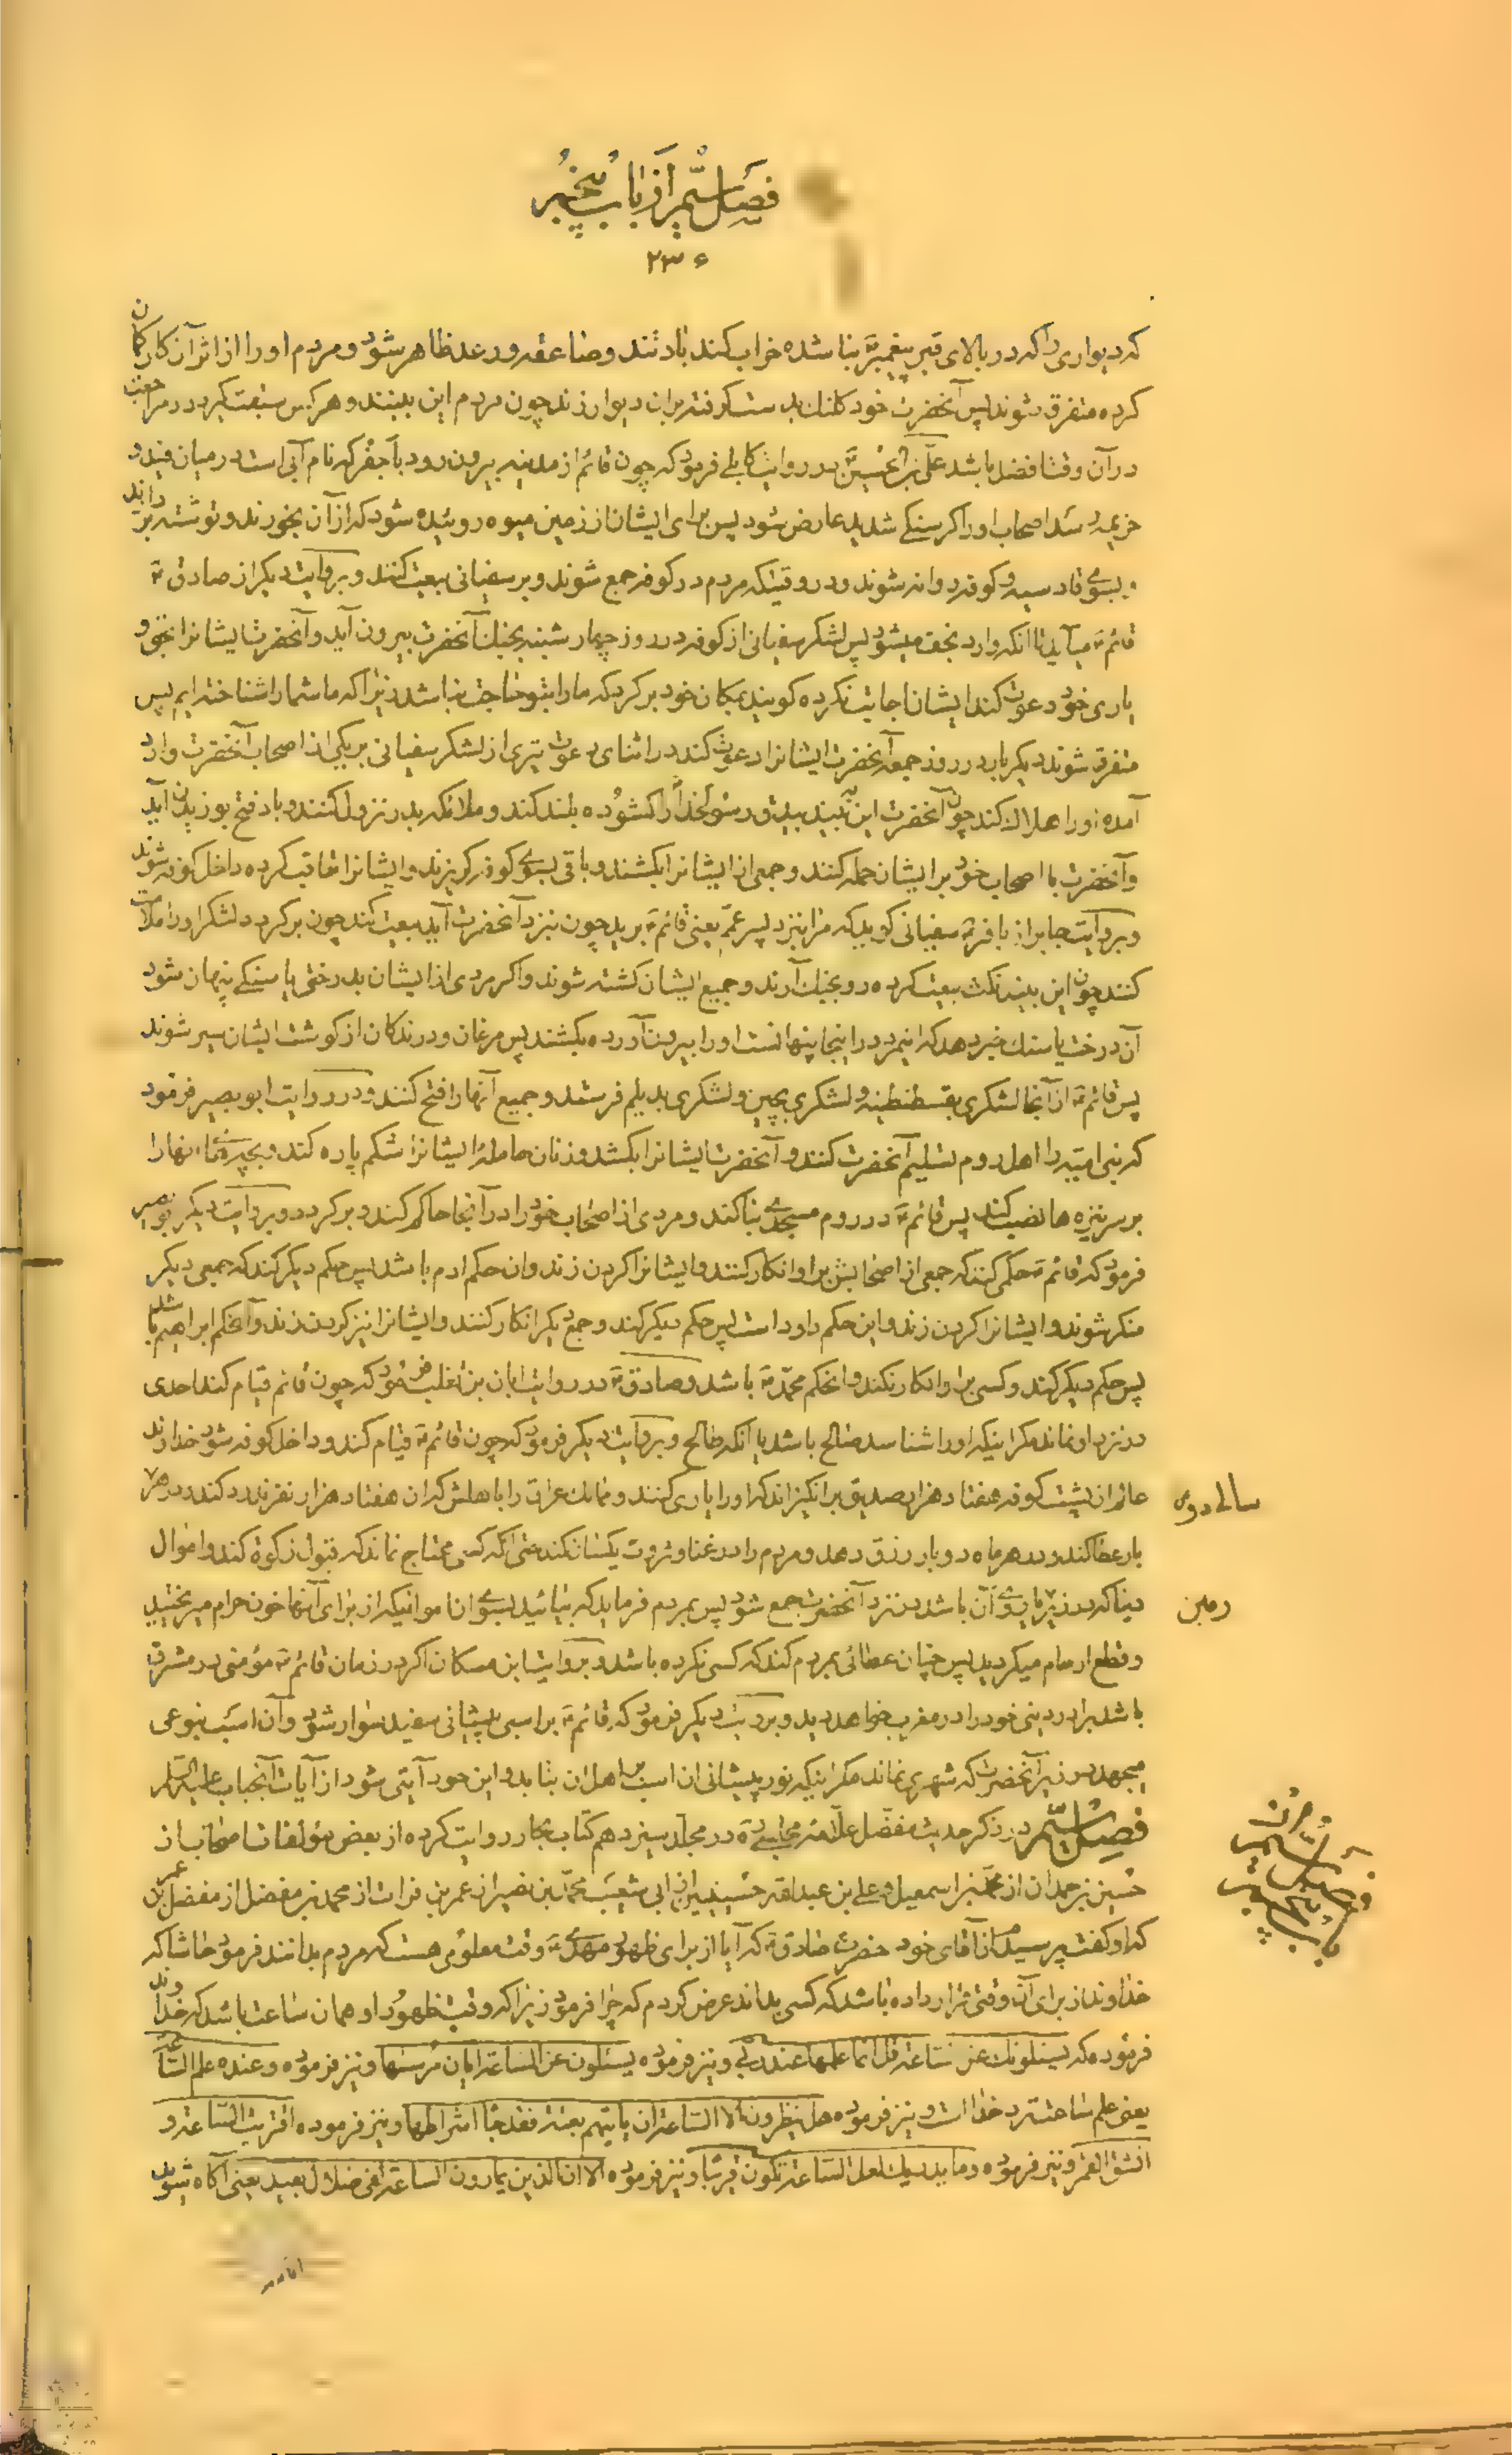 فصل ششم از باب پنجم
۲۳۶
که دیواری را که در بالای قبر پیغمبر بنا شده خراب کند باد تند و صاعقه و رعد ظاهر شود و مردم او را از اثر آن کار کمان
کرده متفرق شوند پس آنحضرت خود کلنک بدست کرفته بران دیوار زند چون مردم این بینند و هر کس سبقت کیرد در مراجعت
در آن وقت افضل باشد علی بن الحسین در روایت کابلی فرمود که چون قائم از مدینه بیرون رود باجفر که نام آبی است در میان فید و
خزیمه رسد اصحاب او را کرسنکی شدید عارض شود پس برای ایشان از زمین میوه روئیده شود که از آن بخورند و توشه بردارند
بسوی قادسیه و کوفه روانه شوند و در وقتیکه مردم در کوفه جمع شوند و بر سفیانی بیعت کنند و بروایت دیکر از صادق ع
قائم ع میآید تا آنکه وارد نجف میشود پس لشکر سفیانی از کوفه در روز چهار شنبه بجنک آنحضرت بیرون آید و آنحضرت ایشانرا بحق و
یاری خود دعوت کند ایشان اجابت نکرده کویند بمکان خود برکرد که ما را بتو حاجت نباشد زیرا که ما شما را شناخته ایم پس
متفرق شوند دیکر بار در روز جمعه آنحضرت ایشانرا دعوت کند در اثنای دعوت تیری از لشکر سفیانی بر یکی از اصحاب آنحضرت وارد
آمده او را هلاک کند چون آنحضرت این بیند بیرق رسول خدا را کشوده بلند کند و ملائکه بدر نزول کنند و باد فتح بوزیدن آید
و آنحضرت با اصحاب خود بر ایشان حمله کنند و جمعی از ایشانرا بکشند و باقی بسوی کوفه کریزند و ایشانرا تعاقب کرده داخل کوفه شوند
و بروایت جابر از باقر ع سفیانی کوید که مرا بنزد پسر عم یعنی قائم ع برید چون بنزد آنحضرت آید بیعت کند چون برکردد لشکر او را ملامت
کنند چون این بیند نکث بیعت کرده رو بجنک آرند و جمیع ایشان کشته شوند و اکر مردی از ایشان بدرختی یا سنکی پنهان شود
آن درخت یا سنک خبر دهد که اینمرد در اینجا پنهانست او را بیرون آورده بکشند پس مرغان و درندکان از کوشت ایشان سیر شوند
پس قائم ع از آنجا لشکری بقسطنطنیه و لشکری بچین و لشکری بدیلم فرستد و جمیع آنها را فتح کنند و در روایت ابو بصیر فرمود
که بنی امیه را اهل روم تسلیم آنحضرت کنند و آنحضرت ایشانرا بکشد و زنان حامله ایشانرا شکم پاره کند و بچه های آنها را
بر سر نیزه ها نصب کند پس قائم ع در روم مسجدی بنا کند و مردی از اصحاب خود را در آنجا حاکم کند و برکردد و بروایت دیکر ابو بصیر
فرمود که قائم ع حکمی کند که جمعی از اصحابش بر او انکار کنند و ایشانرا کردن زند وان حکم ادم باشد پس حکم دیکر کند که جمعی دیکر
منکر شوند و ایشانرا کردن زند و این حکم داود است پس حکم دیکر کند و جمع دیکر انکار کنند و ایشانرا نیز کردن زند و آنحکم ابراهیم باشد
پس حکم دیکر کند و کسی بر او انکار نکند و انحکم محمد ص باشد و صادق ع در روایت ابان بن تغلب فرمود که چون قائم قیام کند احدی
در نزد او نماند مکر اینکه او را شناسد صالح باشد یا آنکه طالح و بروایت دیکر فرمود که چون قائم ع قیام کند و داخل کوفه شود خداوند
عالم از پشت کوفه هفتاد هزار صدیق برانکیزاند که او را یاری کنند و ممالک عراق را باهلش که ان هفتاد هزار نفرند رد کند و در هر
سالی دو
بار عطا کند و در هر ماه دو بار رزق دهد و مردم را در غنا و ثروت یکسان کند حتی آنکه کسی محتاج نماند که قبول زکوة کند و اموال
دنیا که در زیر یا روی آن باشد در نزد آنحضرت جمع شود پس بمردم فرماید که بیائید بسوی ان اموالیکه از برای آنها خون حرام میریختید
زمین
و قطع ارحام میکردید پس چنان عطائی بمردم کند که کسی نکرده باشد و بروایت ابن مسکان اکر در زمان قائم ع مؤمنی در مشرق
باشد برادر دینی خود را در مغرب خواهد دید و بروایت دیکر فرمود که قائم ع بر اسبی پیشانی سفید سوار شود و آن اسب بنوعی
میجهد در زیر آنحضرت که شهری نماند مکر اینکه نور پیشانی ان اسب بر اهل ان بتابد و این خود آیتی شود از آیات آنجناب علیه السلام
فصل ششم در ذکر حدیث مفضل علامه مجلسی ره در مجلد سیزدهم کتاب بحار روایت کرده از بعض مؤلفات اصحاب از
حسین بن حمدان از محمد بن اسمعیل و علی بن عبدالله حسینیین از ابی شعیب محمد بن نصیر از عمر بن فرات از محمد بن مفضل از مفضل بن عمر
که او کفت پرسیدم از آقای خود حضرت صادق ع که آیا از برای ظهور مهدی ع وقت معلومی هست که مردم بدانند فرمود حاشا که
خداوند از برای آن وقتی قرار داده باشد که کسی بداند عرض کردم که چرا فرمود زیرا که وقت ظهور او همان ساعت باشد که خداوند
فرموده که یسئلونک عن الساعة قل انما علمها عند ربی و نیز فرموده یسئلون عن الساعة ایان مرسیها و نیز فرموده و عنده علم الساعة
یعنی علم ساعت نزد خدا است و نیز فرموده هل ینظرون الا الساعة ان یاتیهم بغتة فقد جاء اشراطها و نیز فرموده اقتربت الساعة و
انشق القمر و نیز فرموده و ما یدریک لعل الساعة تکون قریبا و نیز فرموده الا ان الذین یمارون الساعة لفی ضلال بعید یعنی آکاه شوید